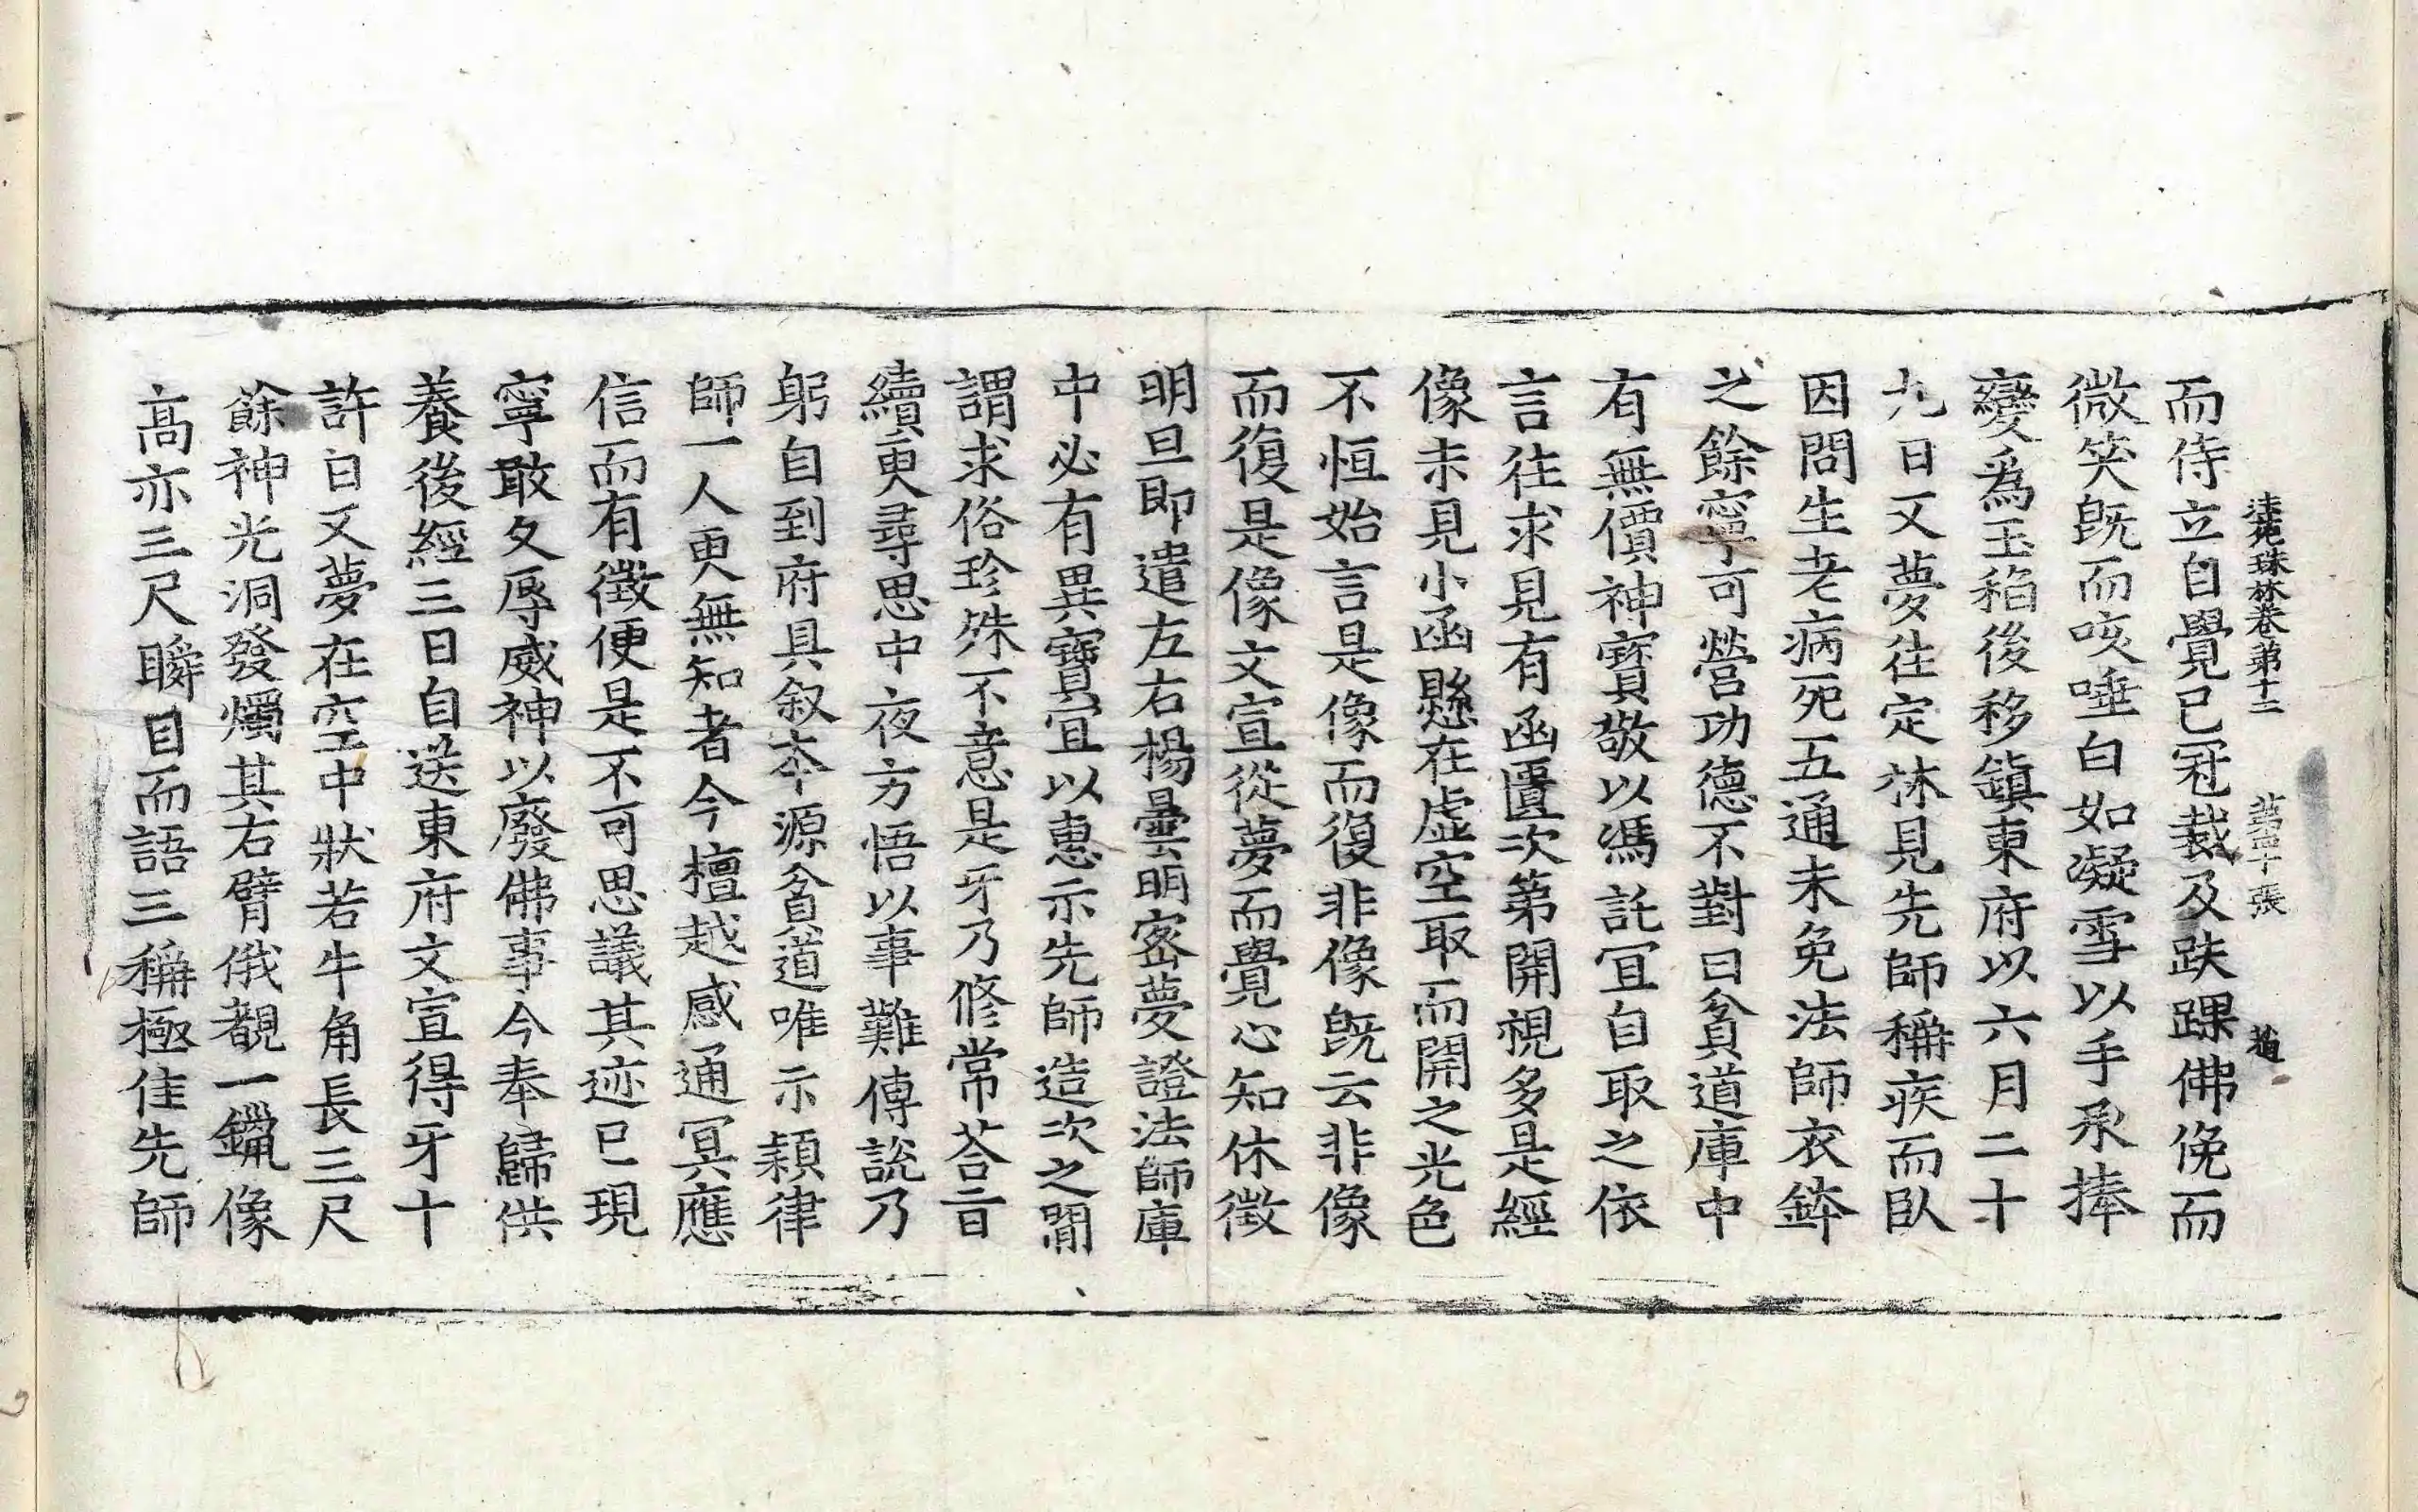 法苑珠林卷第十二 第四十張 菑
而侍立自覺已冠裁及趺踝佛俛而
微笑旣而咳唾白如凝雪以手承捧
變爲玉稻後移鎭東府以六月二十
九日又夢往定林見先師稱疾而臥
因問生老病死五通未免法師衣鉢
之餘寧可營功德不對曰貧道庫中
有無價神寶敬以馮託冝自取之依
言往求見有函匱次第開視多是經
像未見小函懸在虛空取而開之光色
不恒始言是像而復非像旣云非像
而復是像文宣從夢而覺心知休徵
明旦即遣左右楊曇明密夢證法師庫
中必有異寶冝以惠示先師造次之閒
謂求俗珍殊不意是牙乃修常荅二日
續更尋思中夜方悟以事難傳說乃
躬自到府具叙夲源貧道唯示穎律
師一人更無知者今檀越感通冥應
信而有徵便是不可思議其迹已現
寧敢久辱威神以廢佛事今奉歸供
養後經三日自送東府文宣得牙十
許日又夢在空中狀若牛角長三尺
餘神光洞發燭其右臂俄覩一鑞像
高亦三尺瞬目而語三稱極佳先師